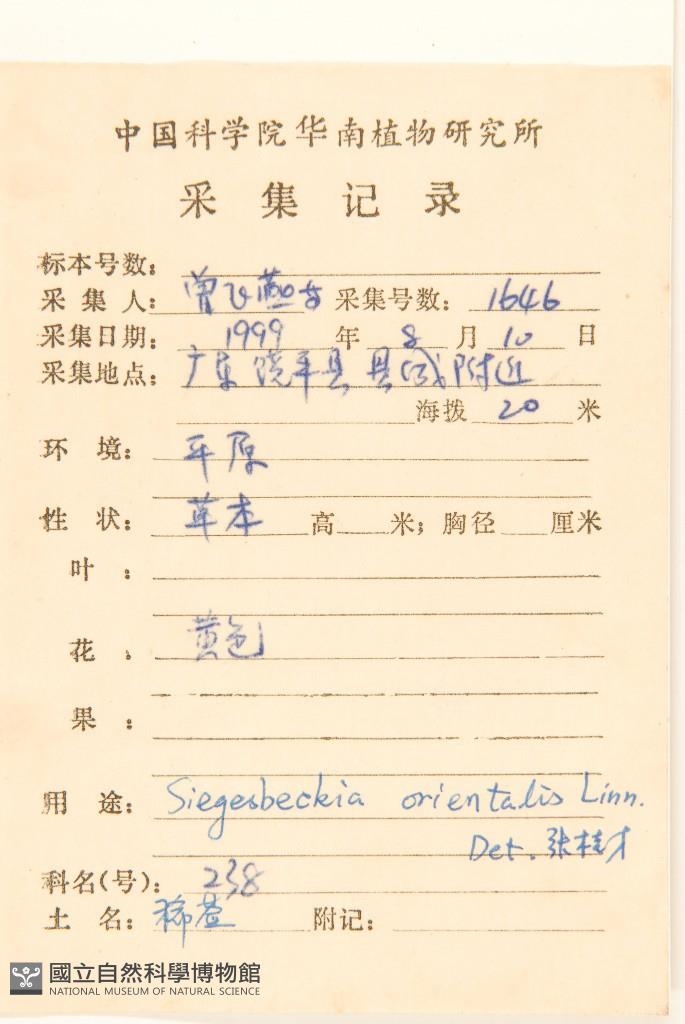 中国科学院华南植物研究所
采集记录
标本号数：
采集人：曾飞燕等 采集号数：1646
采集日期：1999年8月10日
采集地点：广东饶平县县城附近
海拨20米
环境：平原
性状：草本 高 米；胸径 厘米
叶：
花：黄色
果：
用途：Siegesbeckia orientalis Linn.
Det. 张桂才
科名(号)：238
土名：豨莶 附记：
國立自然科學博物館
NATIONAL MUSEUM OF NATURAL SCIENCE